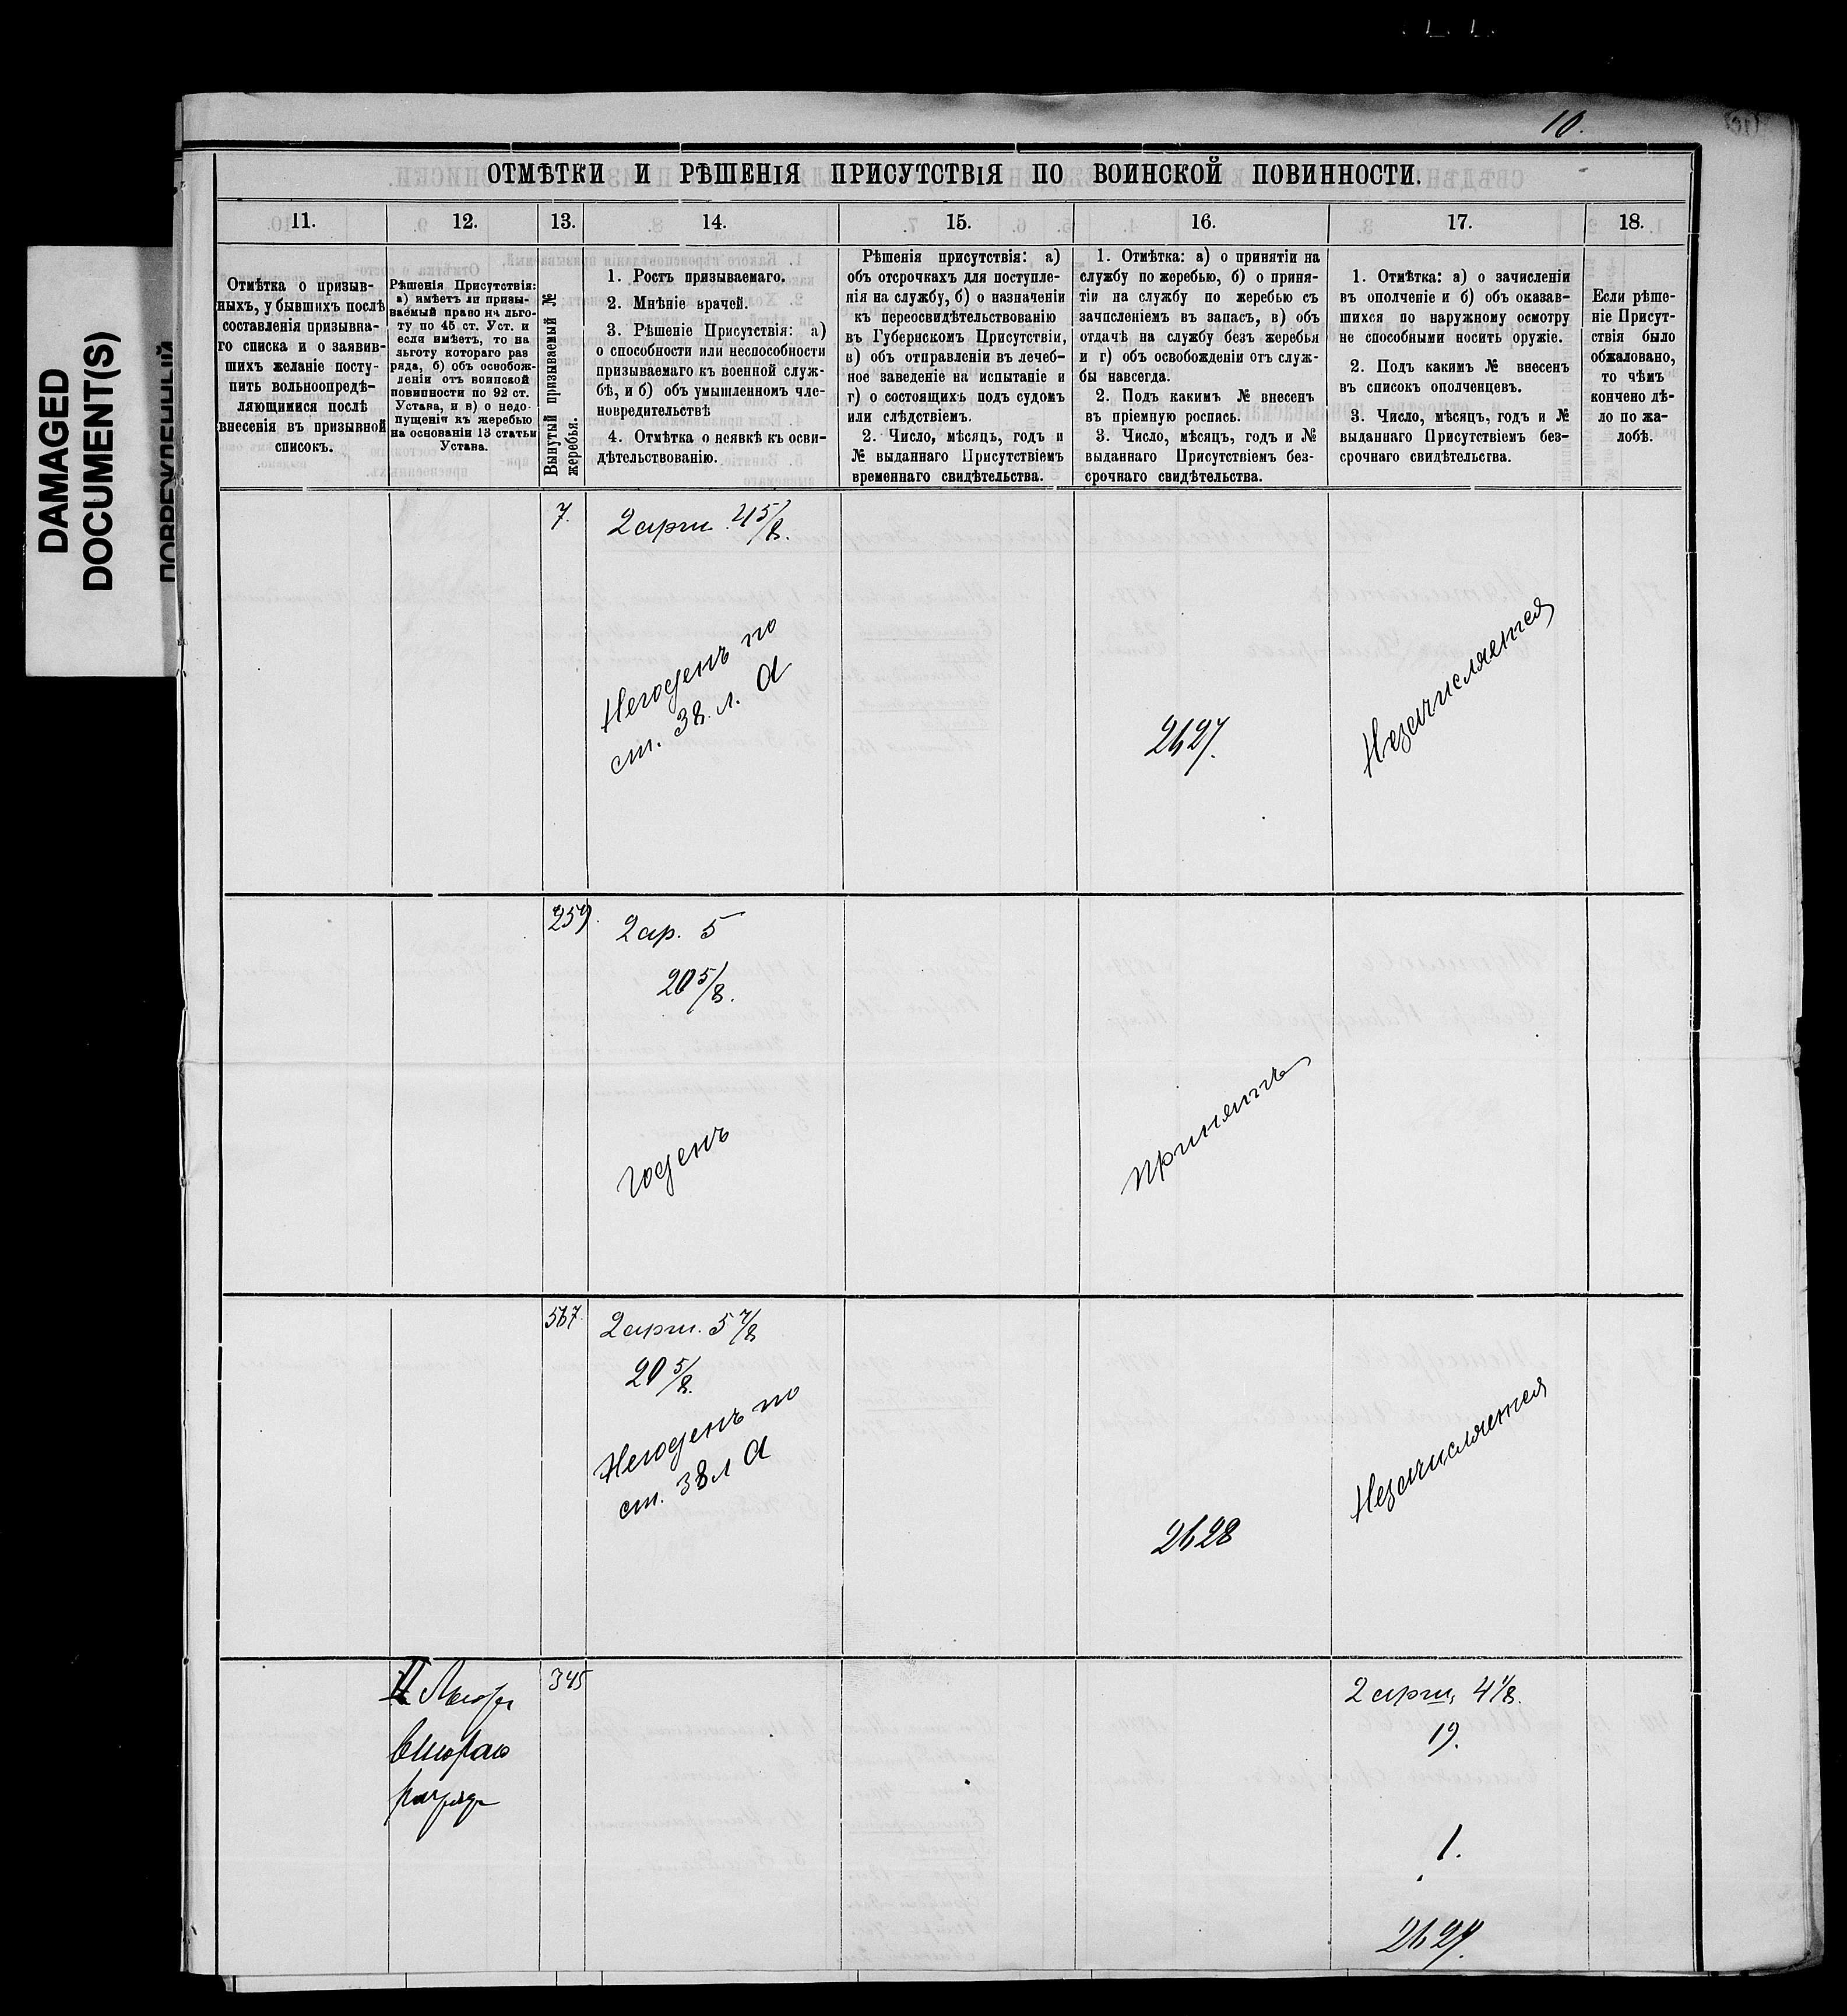 10.
DAMAGED
DOCUMENT(S)
ОТМѢТКИ И РѢШЕНІЯ ПРИСУТСТВІЯ ПО ВОИНСКОЙ ПОВИННОСТИ.
11.
12.
13.
14.
15.
16.
17.
18.
Отмѣтка о призыв-
ныхъ, у бывшихъ послѣ
составленія призывна-
го списка и о заявив-
шихъ желаніе посту-
пить вольноопредѣ-
ляющимися послѣ
внесенія въ призывной
списокъ.
Рѣшенія Присутствія:
а) имѣетъ ли призы-
ваемый право на льго-
ту по 45 ст. Уст. и
если имѣетъ, то на
льготу котораго раз
ряда, б) объ освобож-
деніи отъ воинской
повинности по 92 ст.
Устава, и в) о недо-
пущеніи къ жеребью
на основаніи 13 статьи
Устава.
Вынутый призываемый №
жеребья.
1. Ростъ призываемаго.
2. Мнѣніе врачей.
3. Рѣшеніе Присутствія: а)
о способности или неспособности
призываемаго къ военной служ-
бѣ, и б) объ умышленномъ чле-
новредительствѣ
4. Отмѣтка о неявкѣ къ осви-
дѣтельствованію.
Рѣшенія присутствія: а)
объ отсрочкахъ для поступле-
нія на службу, б) о назначеніи
къ переосвидѣтельствованію
въ Губернскомъ Присутствіи,
в) объ отправленіи въ лечеб-
ное заведеніе на испытаніе и
г) о состоящихъ подъ судомъ
или слѣдствіемъ.
2. Число, мѣсяцъ, годъ и
№ выданнаго Присутствіемъ
временнаго свидѣтельства.
1. Отмѣтка: а) о принятіи на
службу по жеребью, б) о приня-
тіи на службу по жеребью съ
зачисленіемъ въ запасъ, в) объ
отдачѣ на службу безъ жеребья
и г) объ освобожденіи отъ служ-
бы навсегда.
2. Подъ какимъ № внесенъ
въ пріемную роспись.
3. Число, мѣсяцъ, годъ и №
выданнаго Присутствіемъ без-
срочнаго свидѣтельства.
1. Отмѣтка: а) о зачисленіи
въ ополченіе и б) объ оказав-
шихся по наружному осмотру
не способными носить оружіе.
2. Подъ какимъ № внесенъ
въ списокъ ополченцевъ.
3. Число, мѣсяцъ, годъ и №
выданнаго Присутствіемъ без-
срочнаго свидѣтельства.
Если рѣше-
ніе Присут-
ствія было
обжаловано,
то чѣмъ
кончено дѣ-
ло по жа-
лобѣ.
7.
2 арш. 4 5/8.
Негоденъ по
ст. 38. л. А
2627.
Незачисляется
259.
2 ар. 5
20 5/8.
Годенъ
Принятъ
567.
2 арш. 5 7/8
20 5/8.
Негоденъ по
ст. 38 л А
2628
Незачисляется
345
2 арш. 4 1/8.
19.
1.